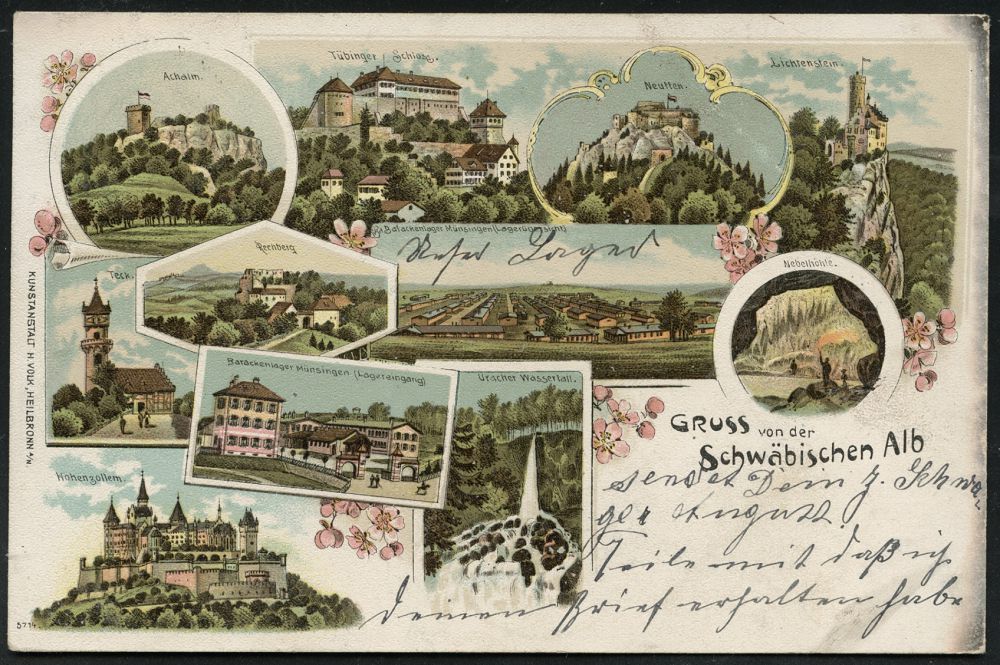 Achalm.
Tübinger Schloss.
Neuffen.
Lichtenstein.
Barackenlager Münsingen (Lagerübersicht)
Unser Lager
Rechberg
Teck.
Nebelhöhle.
Barackenlager Münsingen (Lagereingang)
Uracher Wasserfall.
Hohenzollern.
GRUSS von der
Schwäbischen Alb
sendet Dein z. Schwa
ger August.
Teile mit daß ich
deinen Brief erhalten habe
KUNSTANSTALT H. VOLK, HEILBRONN a/N
5714